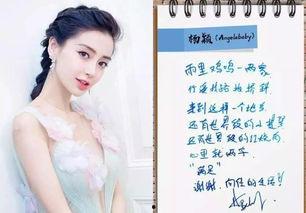 杨颖（Angelababy）
雨里鸡鸣一两家
竹溪村路板桥斜
来到这样一个地方
还有世界级的小
还有世界级的
心里就两字
"满足"
谢谢，向往的生活！